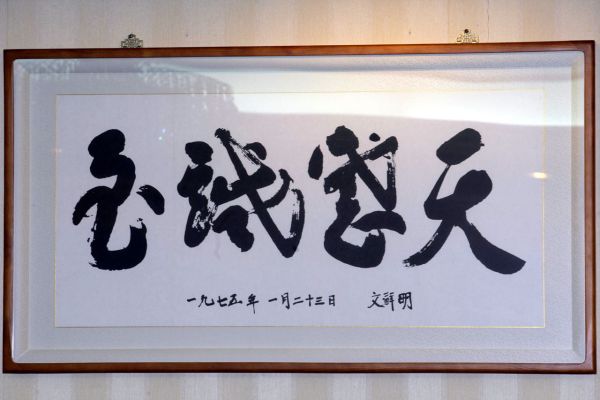 至誠感天
一九七五年 一月二十三日 文鮮明